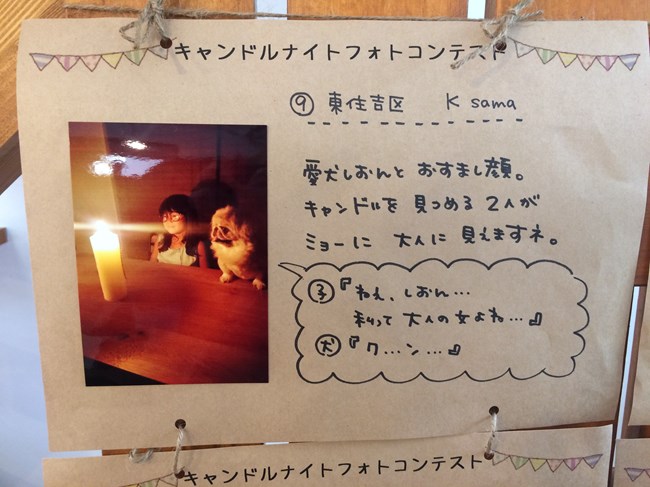 キャンドルナイトフォトコンテスト
⑨ 東住吉区 K sama
愛犬しおんと おすまし顔。
キャンドルを 見つめる 2人が
ミョーに 大人に 見えますネ。
子『ねえ、しおん…
私って 大人の女よね…』
犬『ク…ン…』
キャンドルナイトフォトコンテスト